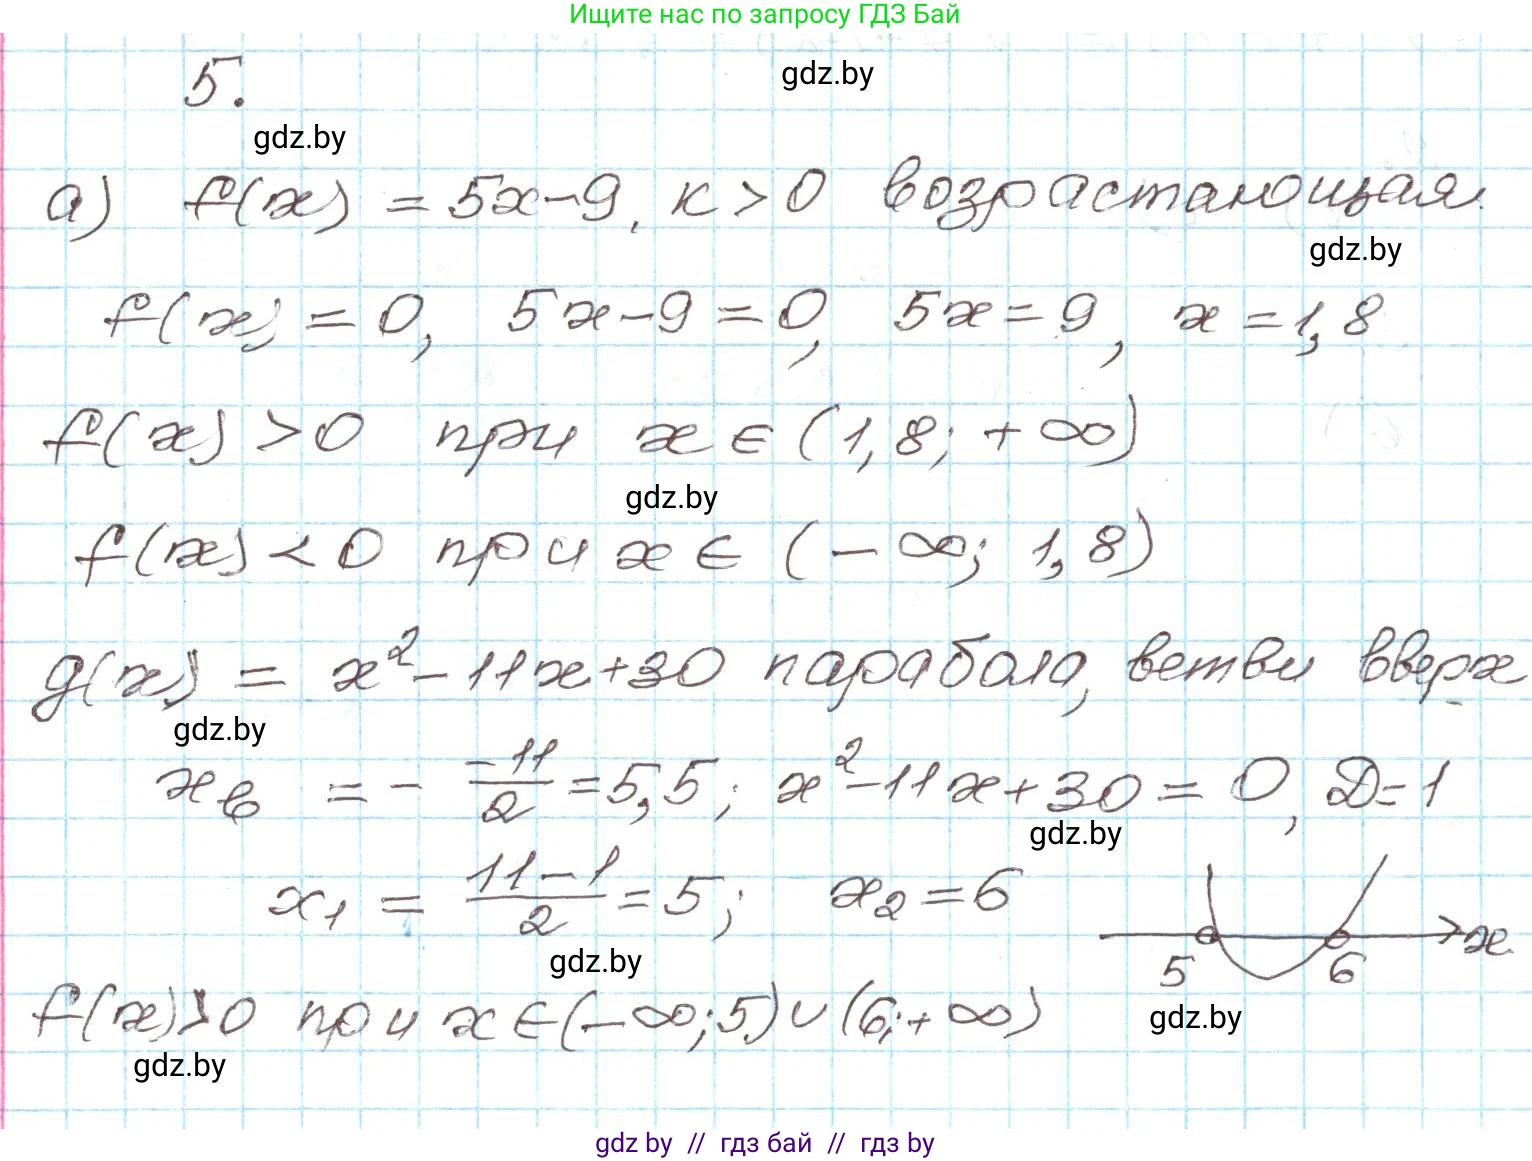 Ищите нас по запросу ГДЗ Бай
5.
gdz.by
gdz.by
а) f(x) = 5x-9, к>0 возрастающая.
gdz.by
f(x) = 0, 5x-9=0, 5x=9, x=1,8
f(x) >0 при x∈(1,8; +∞)
gdz.by
f(x) <0 при x∈ (-∞; 1,8)
g(x) = x²-11x+30 парабола, ветви вверх
gdz.by
xв = - -11/2 =5,5; x²-11x+30=0, D=1
gdz.by
x₁ = 11-1/2 =5; x₂=6
5 6 x
gdz.by
f(x)>0 при x∈(-∞;5)∪(6;+∞)
gdz.by
gdz.by
gdz by // гдз бай // гдз by